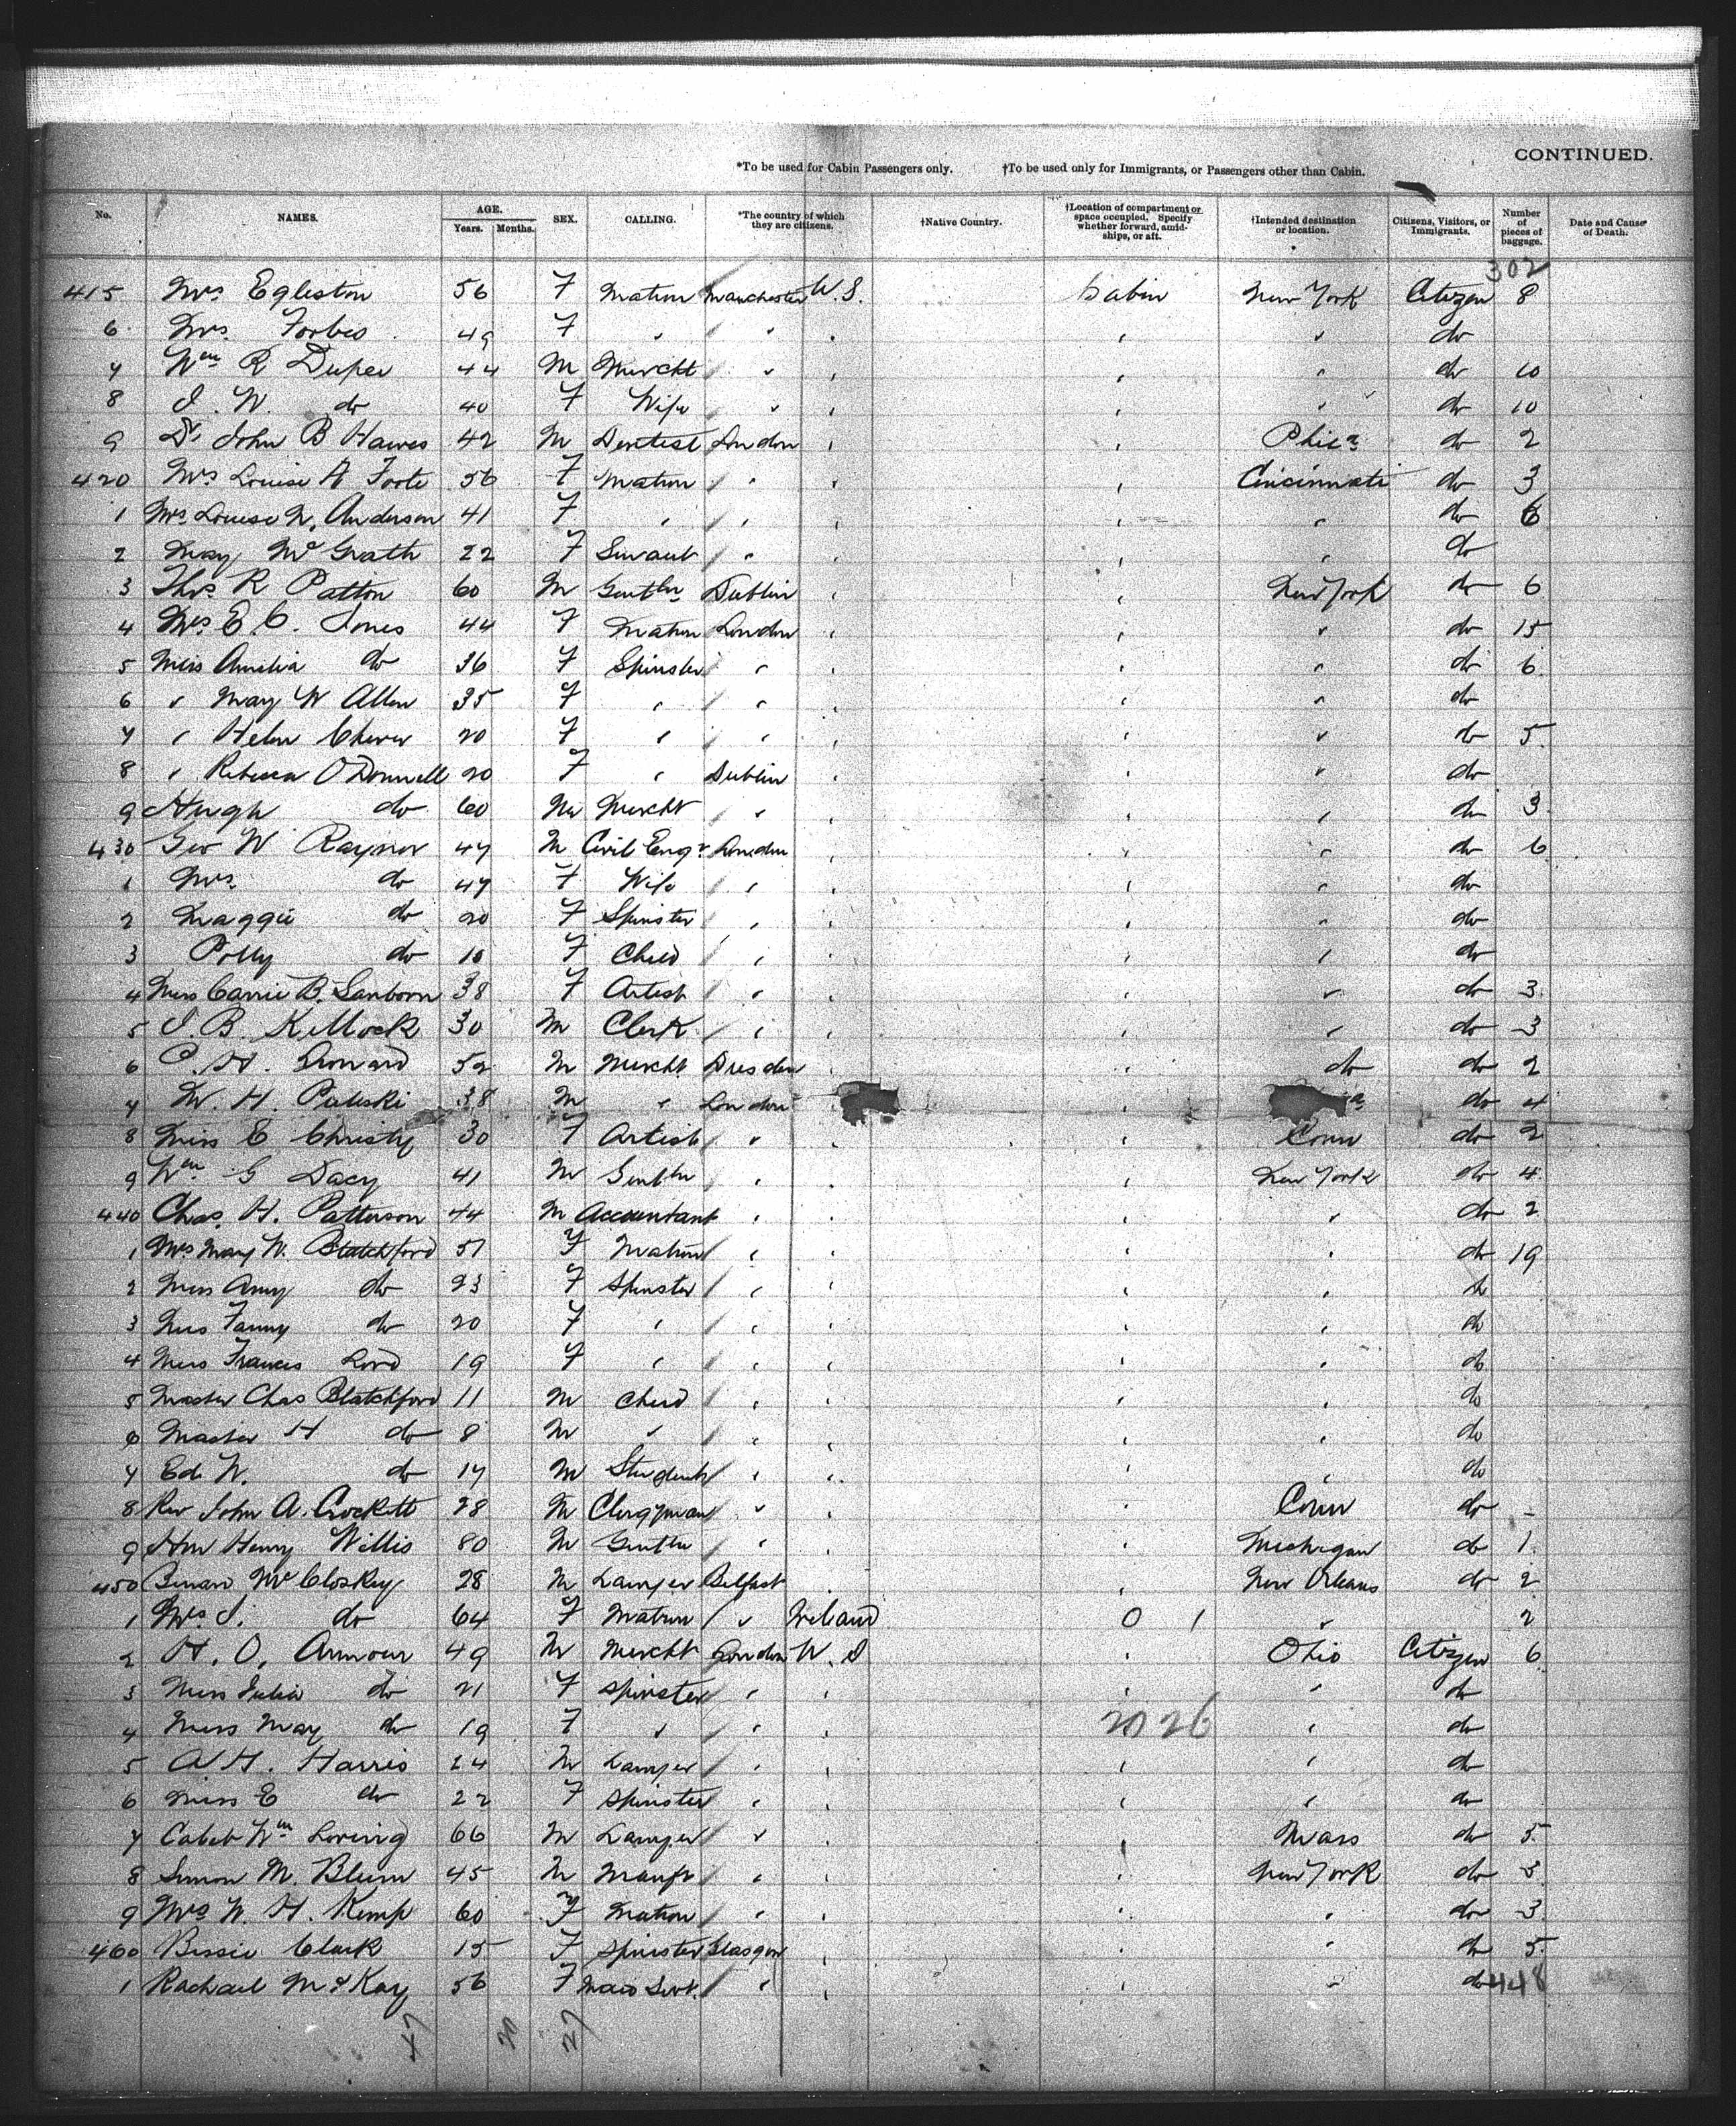 CONTINUED.
*To be used for Cabin Passengers only. †To be used only for Immigrants, or Passengers other than Cabin.
No. NAMES. AGE. Years. Months. SEX. CALLING. *The country of which they are citizens. †Native Country. †Location of compartment or space occupied. Specify whether forward, amidships, or aft. †Intended destination or location. Citizens, Visitors, or Immigrants. Number of pieces of baggage. Date and Cause of Death.
302
415 Mrs Egleston 56 F Matron Manchester U.S. Cabin New York Citizen 8
6 Mrs Forbes 49 F " " " " " do
7 Wm R Duper 44 M Mercht " " " " do 10
8 J. W. do 40 F Wife " " " " do 10
9 Dr John B Hawes 42 M Dentist London " " Phila do 2
420 Mrs Louise A Foote 56 F Matron " " " Cincinnati do 3
1 Mrs Louise N. Anderson 41 F " " " " " do 6
2 May McGrath 22 F Servant " " " " do
3 Thos R Patton 60 M Gentln Dublin " " New York do 6
4 Mrs E. C. Jones 44 F Matron London " " " do 15
5 Miss Amelia do 36 F Spinster " " " " do 6
6 " May W Allen 35 F " " " " " do
7 " Helen Chever 20 F " " " " " do 5
8 " Rebecca O'Donnell 20 F " Dublin " " " do
9 Hugh do 60 M Mercht " " " " do 3
430 Geo W Raynor 47 M Civil Engr London " " " do 6
1 Mrs do 47 F Wife " " " " do
2 Maggie do 20 F Spinster " " " " do
3 Polly do 10 F Child " " " " do
4 Miss Carrie B. Sanborn 38 F Artist " " " " do 3
5 J. B. Kellock 30 M Clerk " " " " do 3
6 C. H. Leonard 52 M Mercht Dresden " " do do 2
7 W. H. Pateski 38 M " London " a do 4
8 Miss E Christy 30 F Artist " " " Conn do 2
9 Wm G Dacy 41 M Gentln " " " New York do 4
440 Chas. H. Patterson 44 M Accountant " " " " do 2
1 Mrs May W. Blatchford 51 F Matron " " " " do 19
2 Miss Amy do 23 F Spinster " " " " do
3 Miss Fanny do 20 F " " " " " do
4 Miss Frances Lord 19 F " " " " " do
5 Master Chas Blatchford 11 M Child " " " " do
6 Master H do 8 M " " " " " do
7 Ed. W. do 17 M Student " " " " do
8 Rev John A. Crockett 28 M Clergyman " " " Conn do -
9 Hon Henry Willis 80 M Gentln " " " Michigan do 1
450 Bernard McCloskey 28 M Lawyer Belfast " " New Orleans do 2
1 Mrs J. do 64 F Matron " Ireland 0 1 " 2
2 H. O. Armour 49 M Mercht London U.S " Ohio Citizen 6
3 Miss Julia do 21 F Spinster " " " " do
4 Miss May do 19 F " " " 2026 " do
5 A H. Harris 24 M Lawyer " " " " do
6 Miss E do 22 F Spinster " " " " do
7 Caleb Wm Loring 66 M Lawyer " " " Mass do 5
8 Simon M. Blum 45 M Manfr " " " New York do 3
9 Mrs W. H. Kemp 60 F Matron " " " " do 3
460 Bessie Clark 15 F Spinster Glasgow " " " do 5
1 Rachael McKay 56 F Maid Servt. " " " " do 448
47 20 27